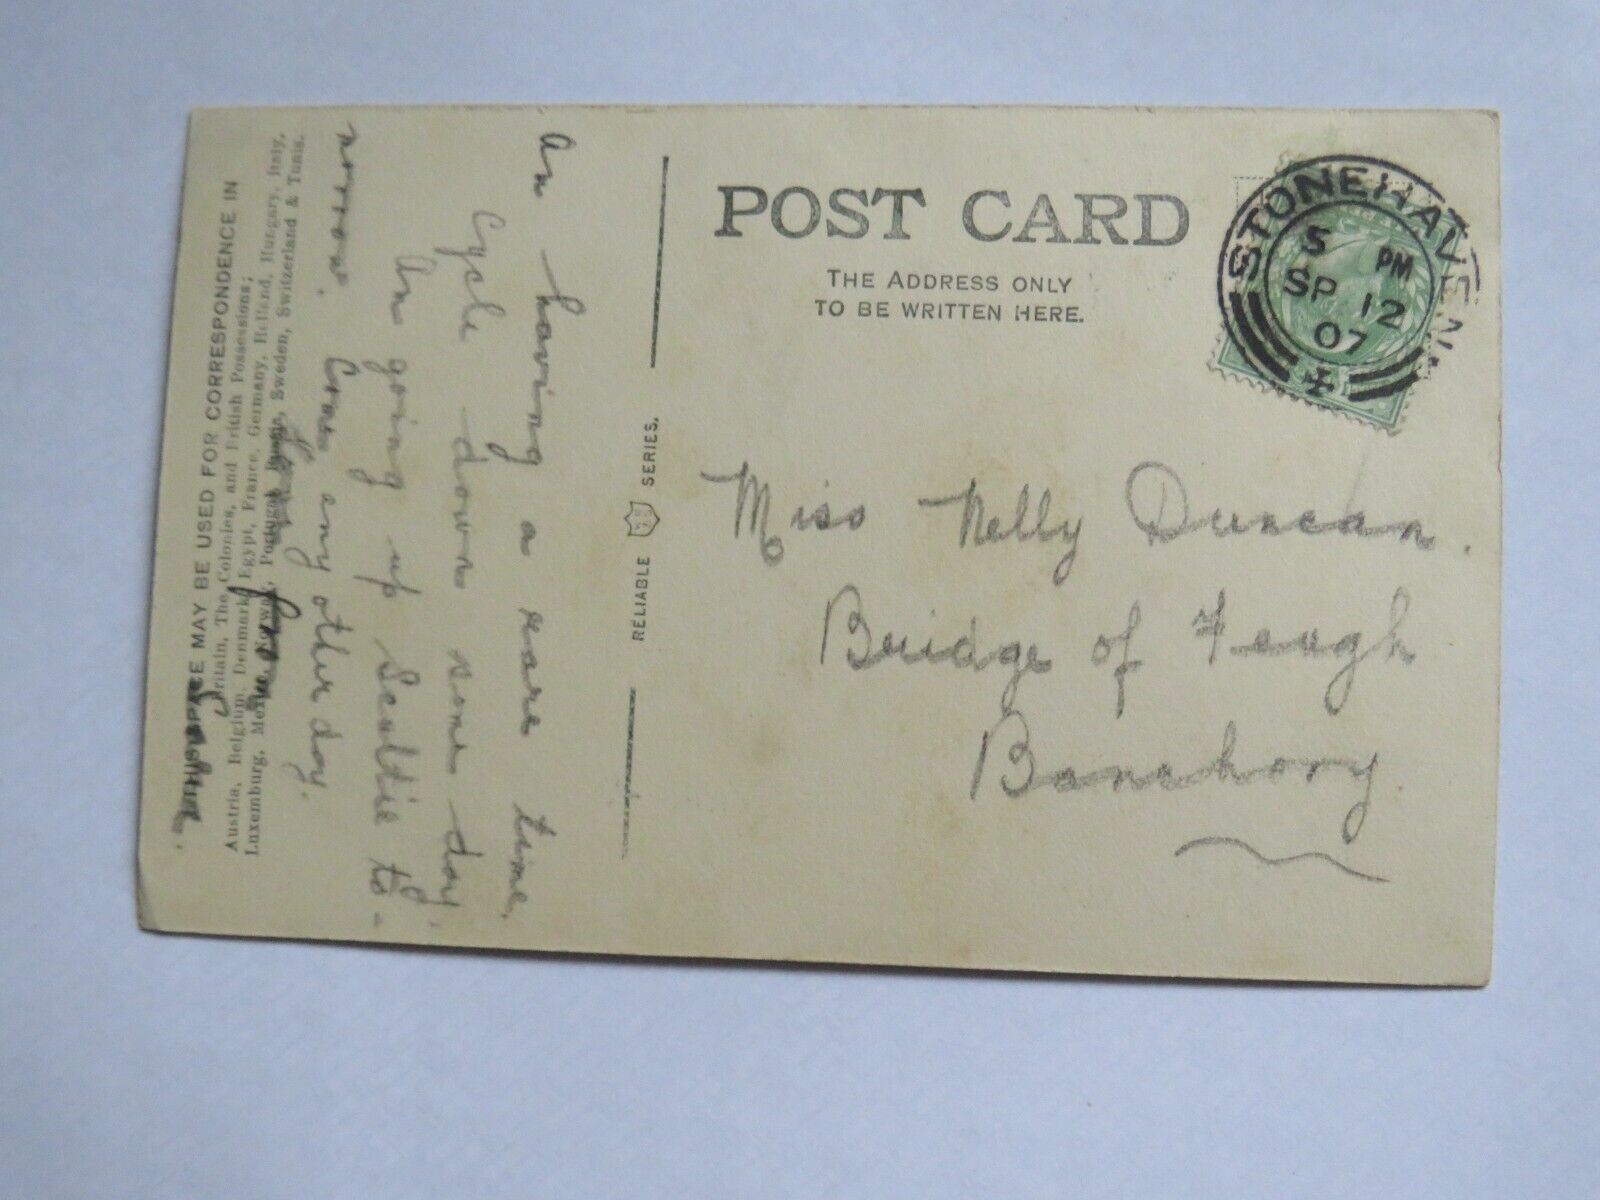 POST CARD
THE ADDRESS ONLY
TO BE WRITTEN HERE.
STONEHAVEN
5 PM
SP 12
07
Miss Nelly Duncan.
Bridge of Feugh
Banchory
RELIABLE SERIES.
THIS SPACE MAY BE USED FOR CORRESPONDENCE IN
Britain, The Colonies, and British Possessions;
Austria, Belgium, Denmark, Egypt, France, Germany, Holland, Hungary, Italy,
Luxemburg, Mexico, Norway, Portugal, Russia, Sweden, Switzerland & Tunis.
Am having a rare time,
Cycle down some day,
Am going up Scoltie to-
morrow. Come any other day.